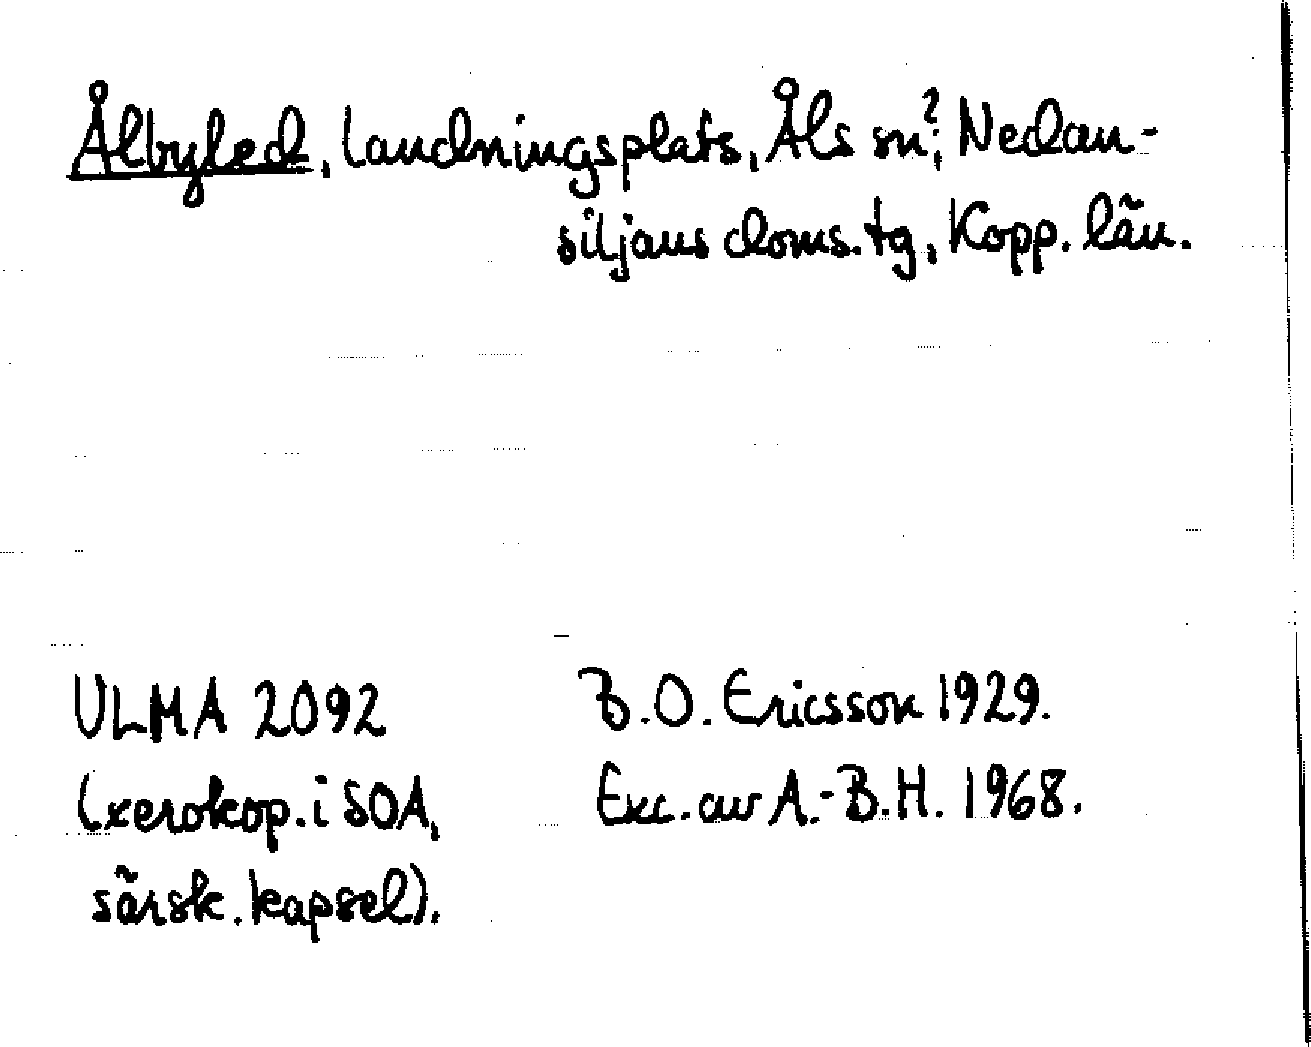 Ålbyled, landningsplats, Åls sn?, Nedan-
siljans doms.tg, Kopp. län.
ULMA 2092
(xerokop. i SOA,
särsk. kapsel).
B.O. Ericsson 1929.
Exc. av A.-B.H. 1968.